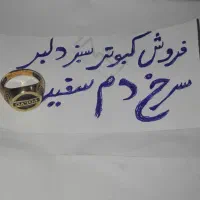 فروش کبوتر سبز دلبر
سرخ دم سفید